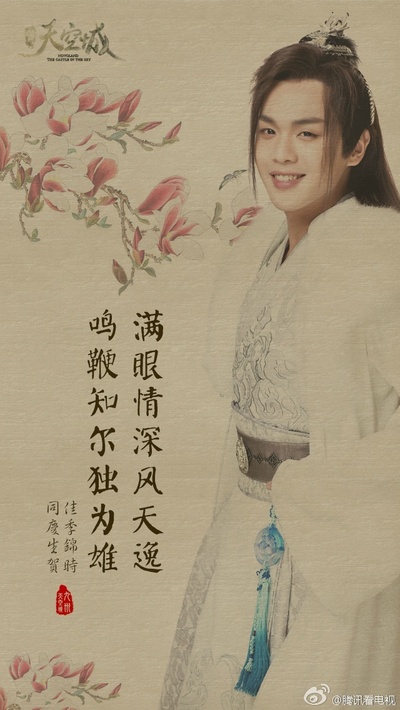 天空城
NOVOLAND
THE CASTLE IN THE SKY
满眼情深风天逸
鸣鞭知尔独为雄
佳季錦時
同慶生賀
九州
天空城
@腾讯看电视